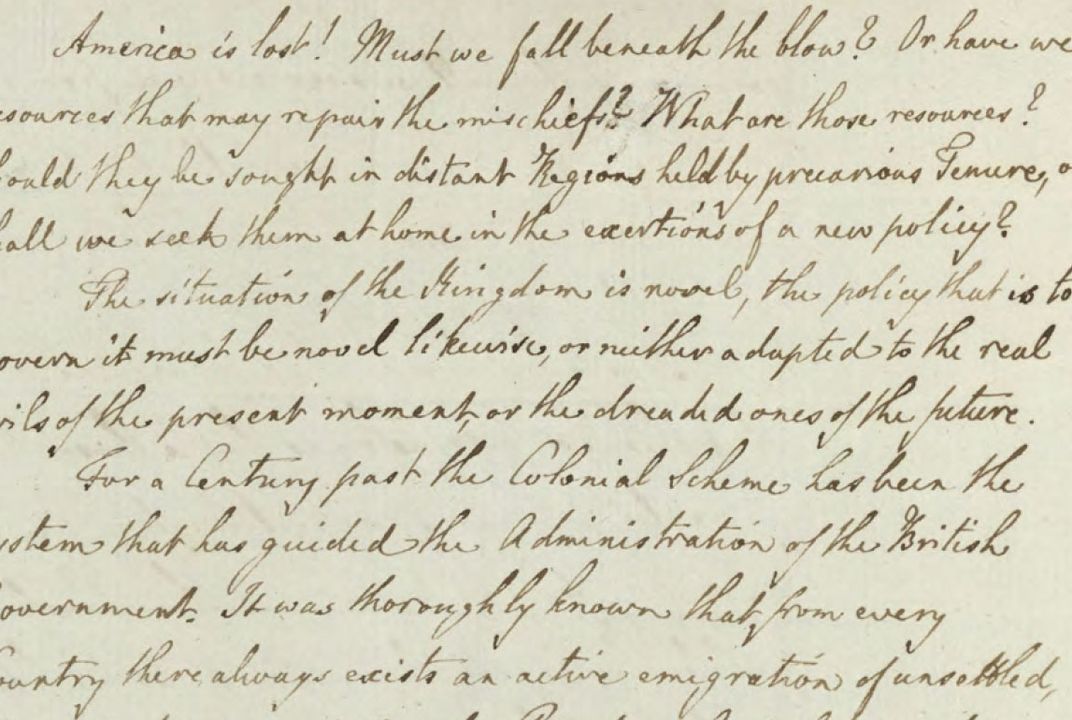 America is lost! Must we fall beneath the blow? Or have we
esources that may repair the mischiefs? What are those resources?
ould they be sought in distant Regions held by precarious Tenure, o
hall we seek them at home in the exertions of a new policy?
The situation of the Kingdom is novel, the policy that is to
overn it must be novel likewise, or neither adapted to the real
vils of the present moment, or the dreaded ones of the future.
For a Century past the Colonial Scheme has been the
ystem that has guided the Administration of the British
overnment. It was thoroughly known that, from every
Country there always exists an active emigration of unsettled,